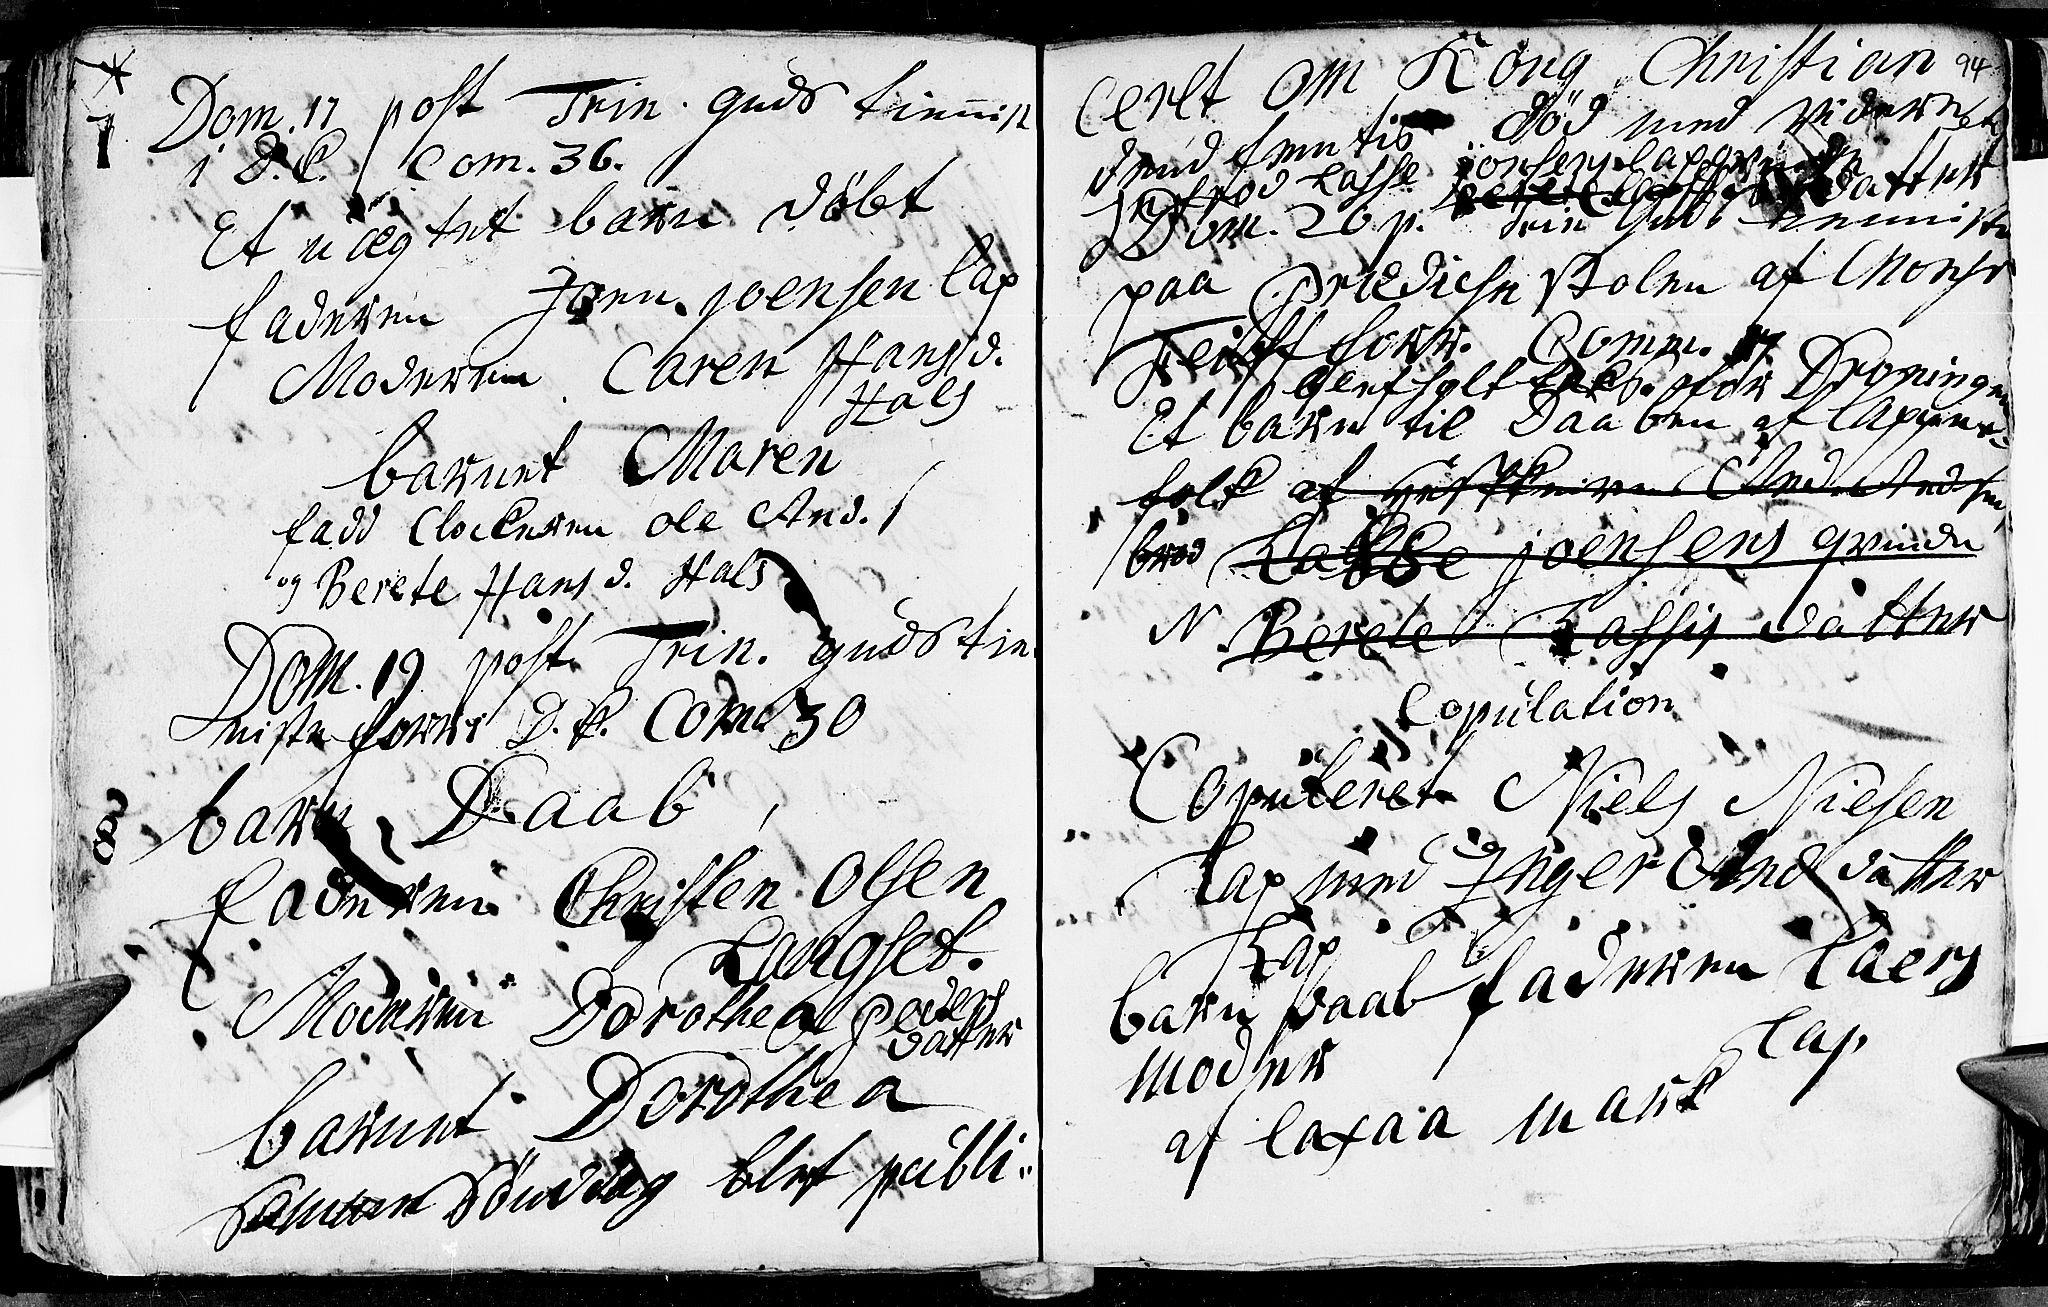 Dom. 17 post Trin. guds tienist
i D.K. Com. 36.
7
Et uægtet barn døbt
faderen Joen joensen lap
Moderen Caren Hansd.
Hals
barnet Maren
fadd Clockeren ole And.
og Berete Hans d. Hals
Dom. 19 post Trin. guds tie
niste D.K. Com. 30
8
barn Daab
faderen Christen Olsen
Langset.
Moderen Dorothea peders
datter
barnet Dorothea
Samme Søndag blef publi-
94
ceret om Kong Christian
død med videre
Lasse joensens
datter
Dom. 20 p. Trin Guds tienniste
paa prædiche stolen af Monsr
forr. Comm. 17
for Droningen
Et barn til Daaben af lappe
folk af And. Andsen
Lasse joensens qvinde
N. Berete Lassis datter
Copulation
Copuleret Niels Nielsen
Lap med Inger And datter
Lap
barn daab faderen Laers
Lap
moder
af laxaa mark